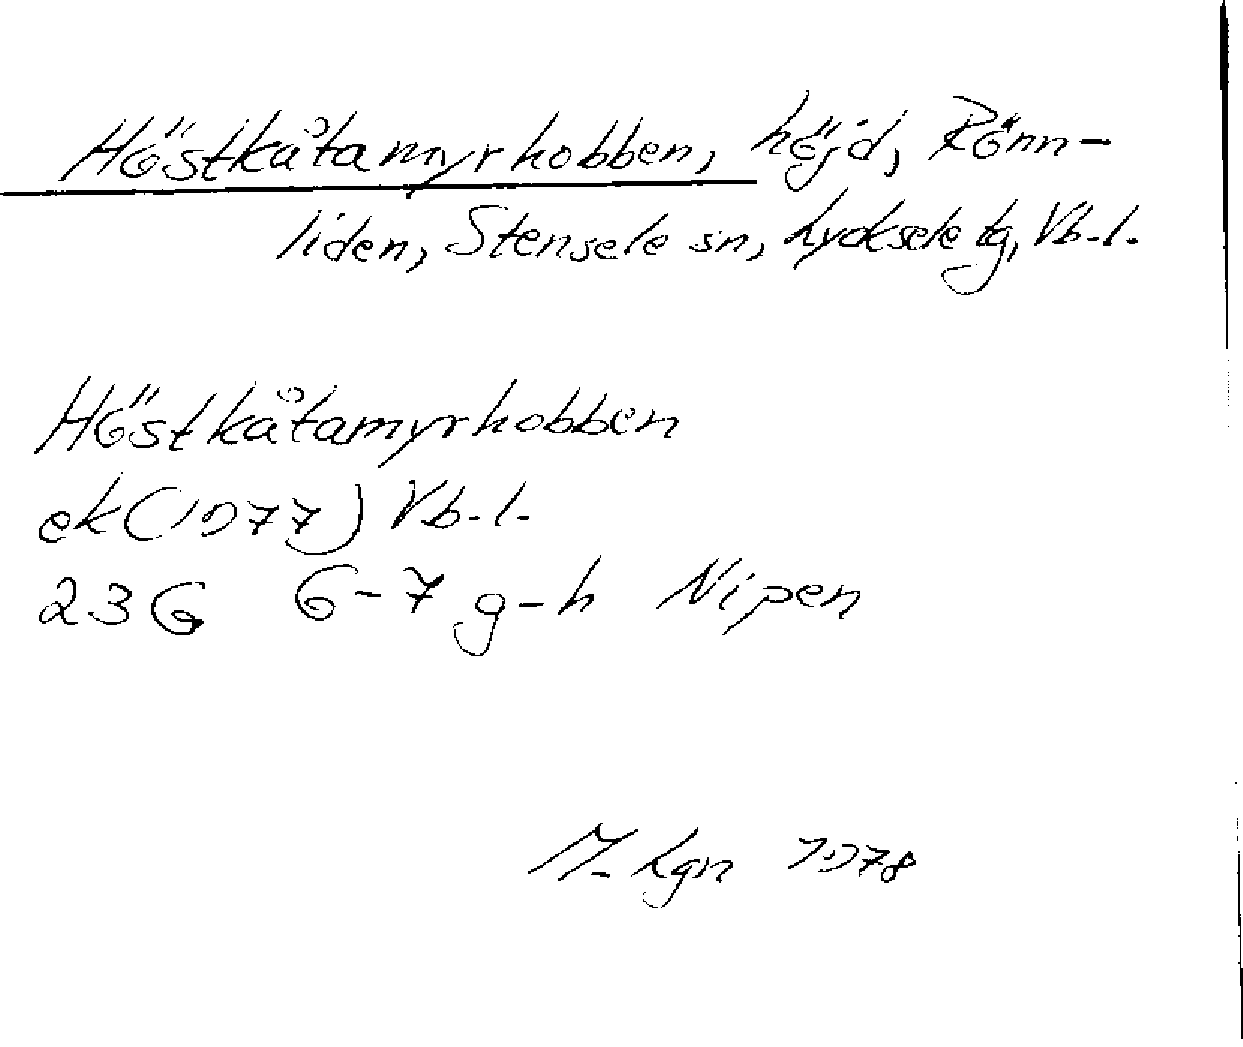 Höstkåtamyrhobben, höjd, Rönn-
liden, Stensele sn, Lycksele tg, Vb. l.
Höstkåtamyrhobben
ek (1977) Vb. l.
23 G 6-7 g-h Nipen
M. Lgn 1978